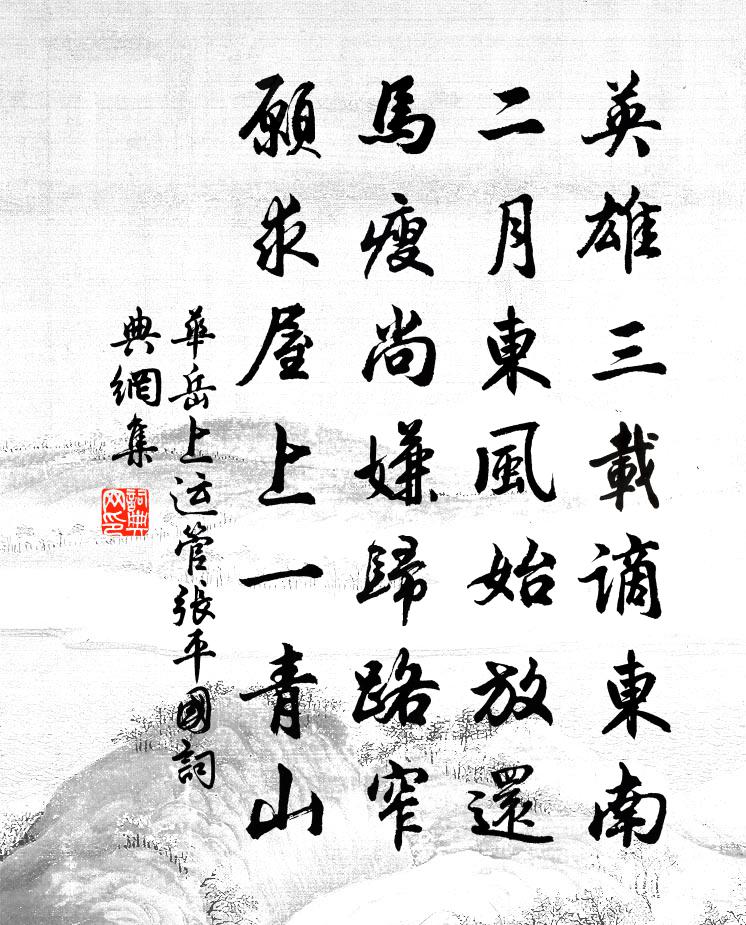 英雄三載謫東南
二月東風始放還
馬瘦尚嫌歸路窄
願求屋上一青山
華岳上运管張平國詞
典網集
詞典
网印